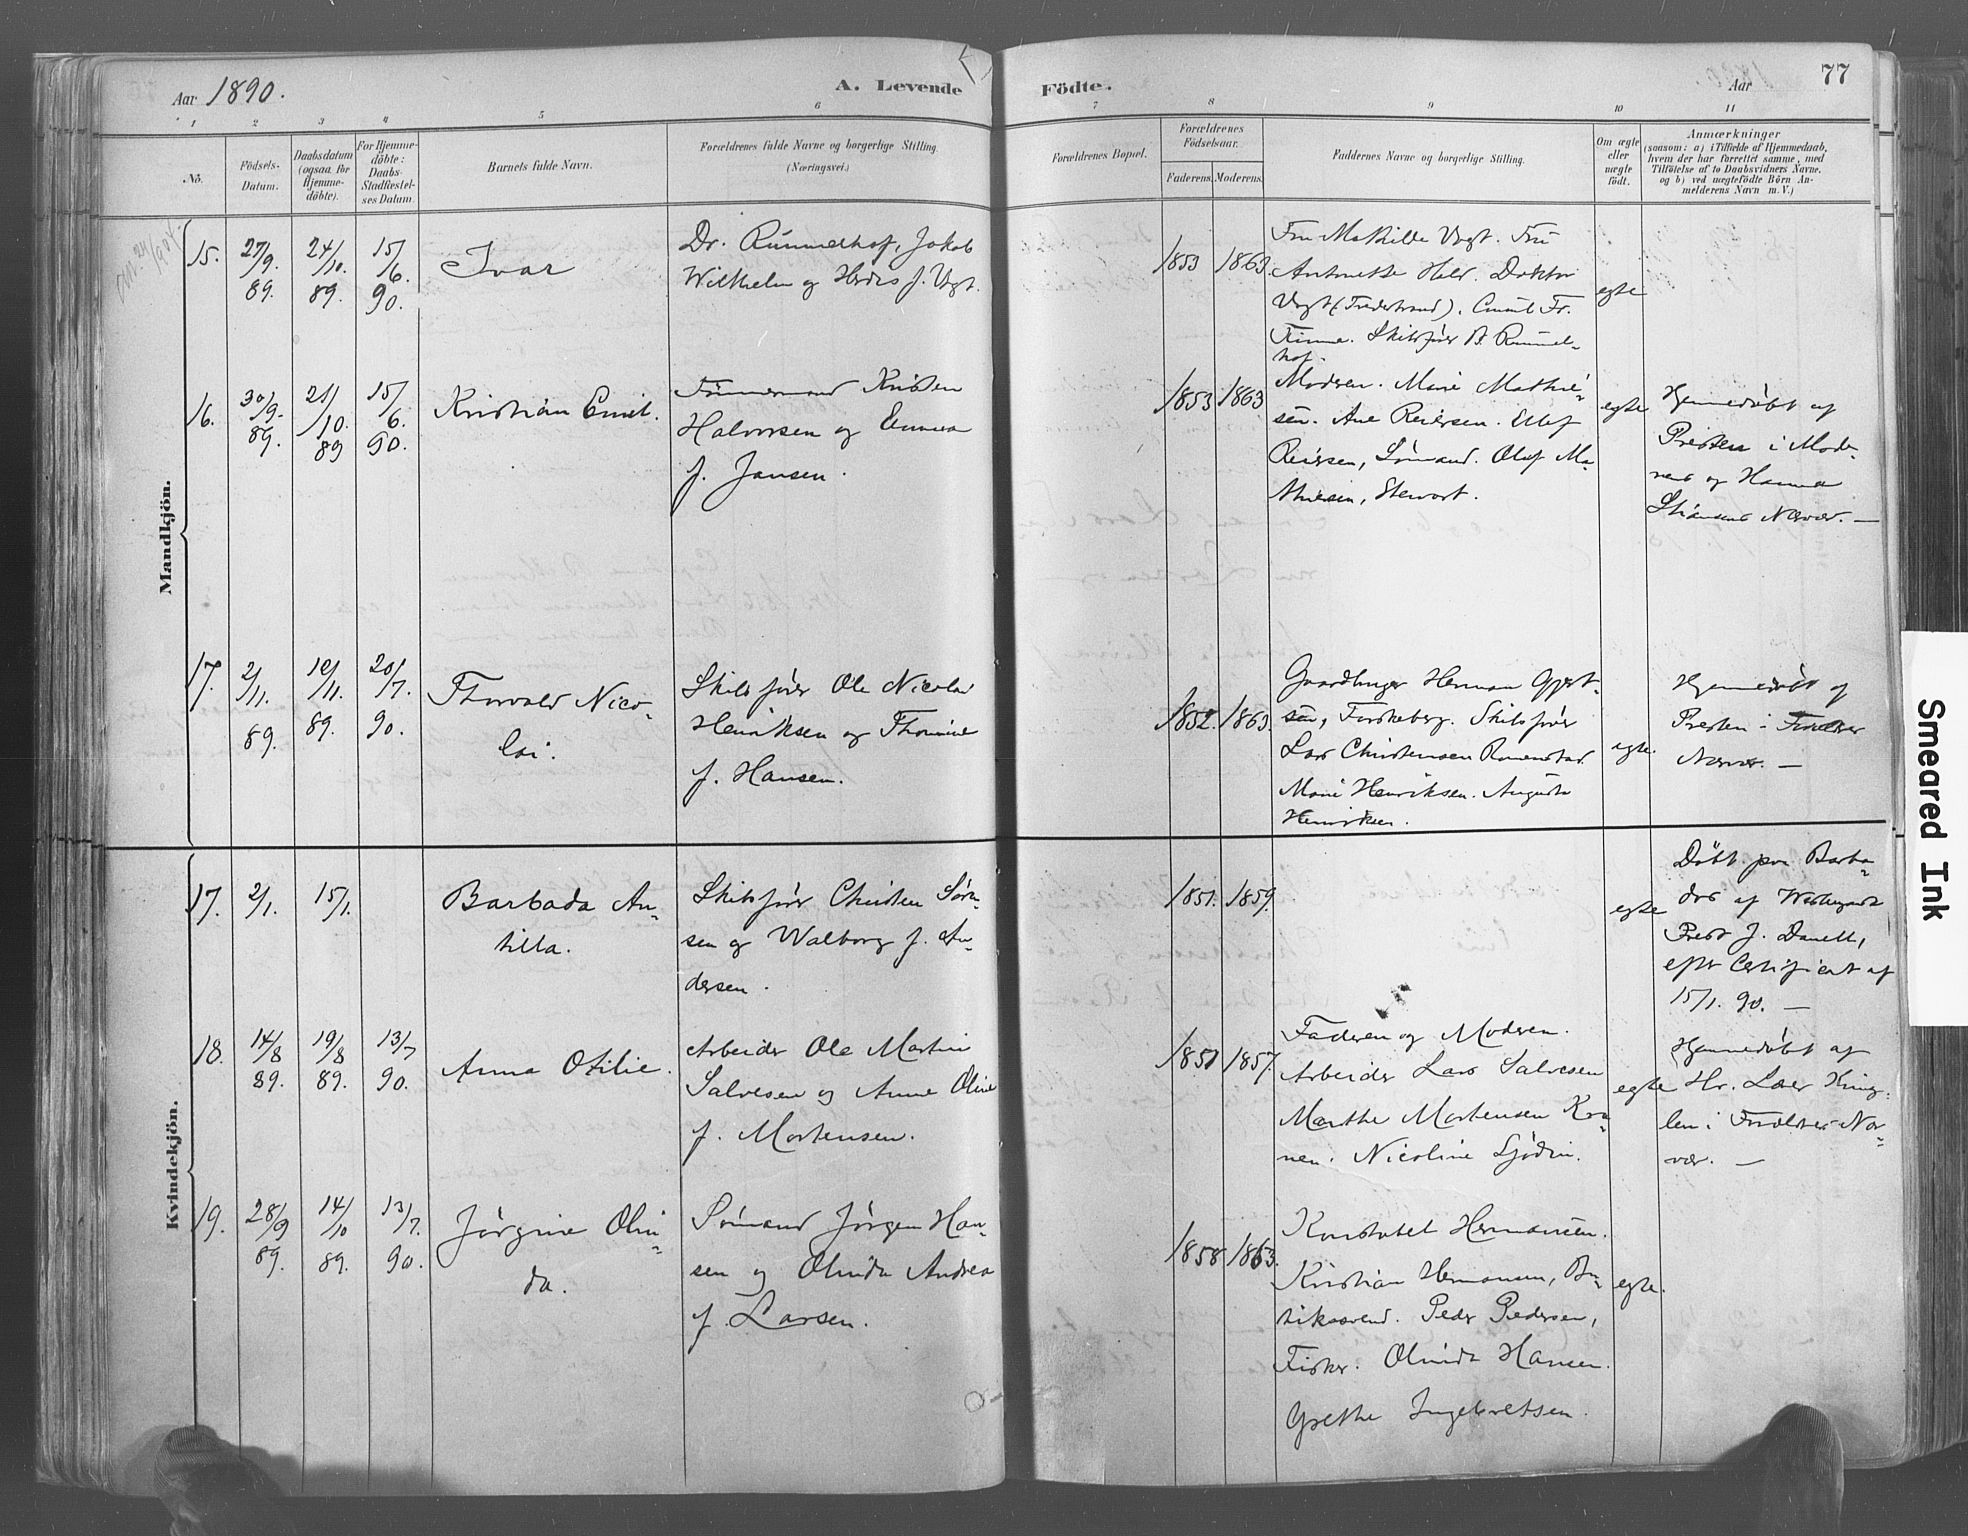 Aar 1890.
A. Levende
Födte.
Aar
77
1 2 3 4 5 6 7 8 9 10 11
No.
Födsels-
Datum.
Daabsdatum
(ogsaa for
Hjemme-
döbte).
For Hjemme-
döbte:
Daabs-
Stadfæstel-
ses Datum.
Barnets fulde Navn.
Forældrenes fulde Navne og borgerlige Stilling
(Næringsvei.)
Forældrenes Bopæl.
Forældrenes
Födselsaar.
Faderens. Moderens.
Faddernes Navne og borgerlige Stilling.
Om ægte
eller
uægte
födt.
Anmærkninger
(saasom: a) i Tilfælde af Hjemmedaab,
hvem der har forrettet samme, med
Tilföielse af to Daabsvidners Navne.
og b) ved uægtefödte Börn An-
melderens Navn m. V.)
Mandkjön.
15.
27/9.
89.
24/10.
89.
15/6.
90.
Ivar
Dr. Rummelhof, Jakob
Wilhelm og Herdis f. Vogt.
1853 1863
Fru Mathilde Vogt. Fru
Antonette Held. Doktor
Vogt (Fredrikstad).
Finne. Skibsfører B. Rummel-
hof.
egte
16.
30/9.
89.
21/10.
89
15/6.
90.
Kristian Emil.
Tömmermand Kristen
Halvorsen og Emma
f. Jansen.
1853 1863
Moderen. Marie Mathie-
sen. Ane Reiersen. Ellef
Reiersen, Sömand. Olaf Ma-
thiesen, Stewart.
egte
Hjemmedøbt af
Presten i Mode-
rens og Hanna
Nærvær. —
17.
2/11.
89.
10/11.
89.
20/7.
90.
Thorvald Nico-
lai.
Skibsfører Ole Nicolai
Henriksen og Thomine
f. Hansen.
1852. 1863.
Gaardbruger Herman Gjert-
sen, Torskeberg. Skibsfører
Lars Christensen
Marie Henriksen. Augusta
Henriksen.
egte.
Hjemmedøbt af
Presten i Foreldres
Nærvær. —
Kvindekjön.
17.
2/1.
15/1.
Barbada An-
tilla.
Skibsfører Christen Sörn-
sen og Walborg f. An-
dersen.
1851. 1859.
egte
Døbt paa Barba-
dos af
Prest J. Danell,
efter Certificat af
15/1. 90. —
18.
14/8
89.
19/8
89.
13/7
90.
Anna Otilie.
Arbeider Ole Martin
Salvesen og Anne Oline
f. Mortensen.
1851 1857.
Faderen og Moderen.
Arbeider Lars Salvesen
Marthe Mortensen Ko-
nen. Nicoline Sjödin.
egte
Hjemmedøbt af
Hr. Lærer
i Foreldres Nær-
vær. —
19.
28/9
89.
14/10
89.
13/7.
90.
Jørgine Olin-
da.
Sömand Jørgen Han-
sen og Olinda Andrea
f. Larsen.
1858 1863.
Konstabel Hermansen.
Kristian Hermansen, Bu-
tiksvend. Peder Pedersen,
Fisker. Olinda Hansen.
Grethe Ingebretsen.
egte.
Smeared Ink